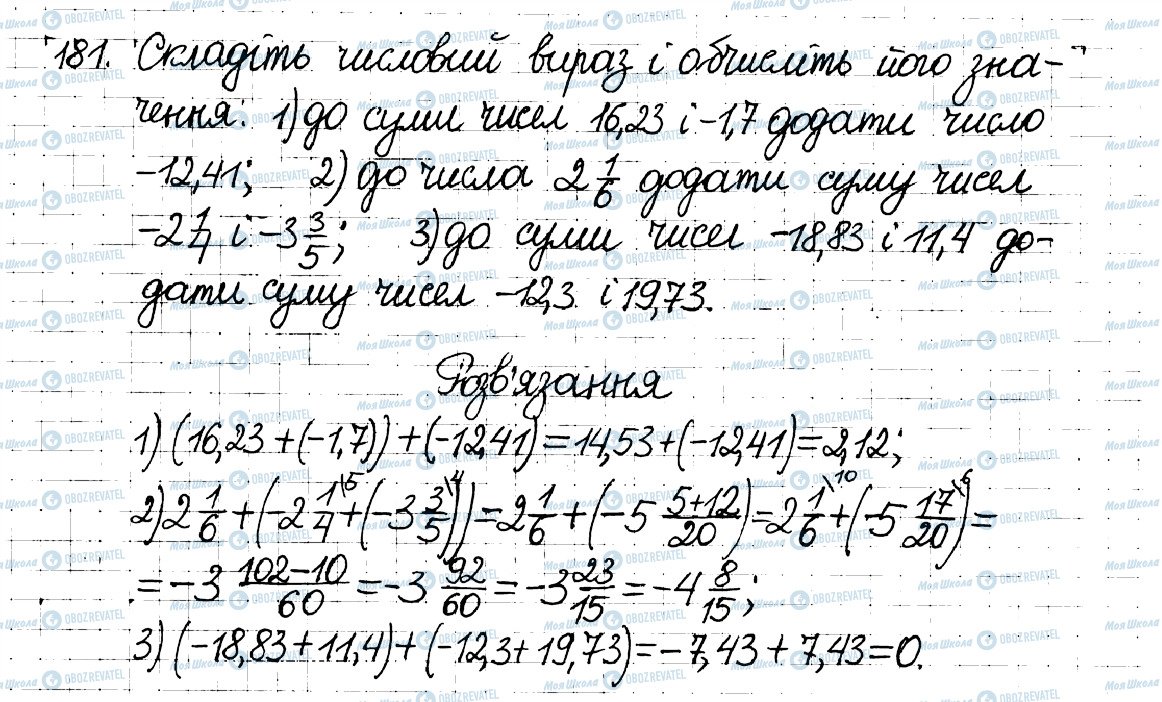 181. Складіть числовий вираз і обчисліть його зна-
чення: 1) до суми чисел 16,23 і -1,7 додати число
-12,41; 2) до числа 2 1/6 додати суму чисел
-2 1/4 і -3 3/5; 3) до суми чисел -18,83 і 11,4 до-
дати суму чисел -12,3 і 19,73.
Розв'язання
1) (16,23+(-1,7))+(-12,41)=14,53+(-12,41)=2,12;
2) 2 1/6 + (-2 1\5/4 + (-3 3\4/5)) = 2 1/6 + (-5 5+12/20) = 2 1\10/6 + (-5 17\6/20) =
= -3 102-10/60 = -3 92/60 = -3 23/15 = -4 8/15;
3) (-18,83+11,4)+(-12,3+19,73)=-7,43+7,43=0.
МояШкола OBOZREVATEL